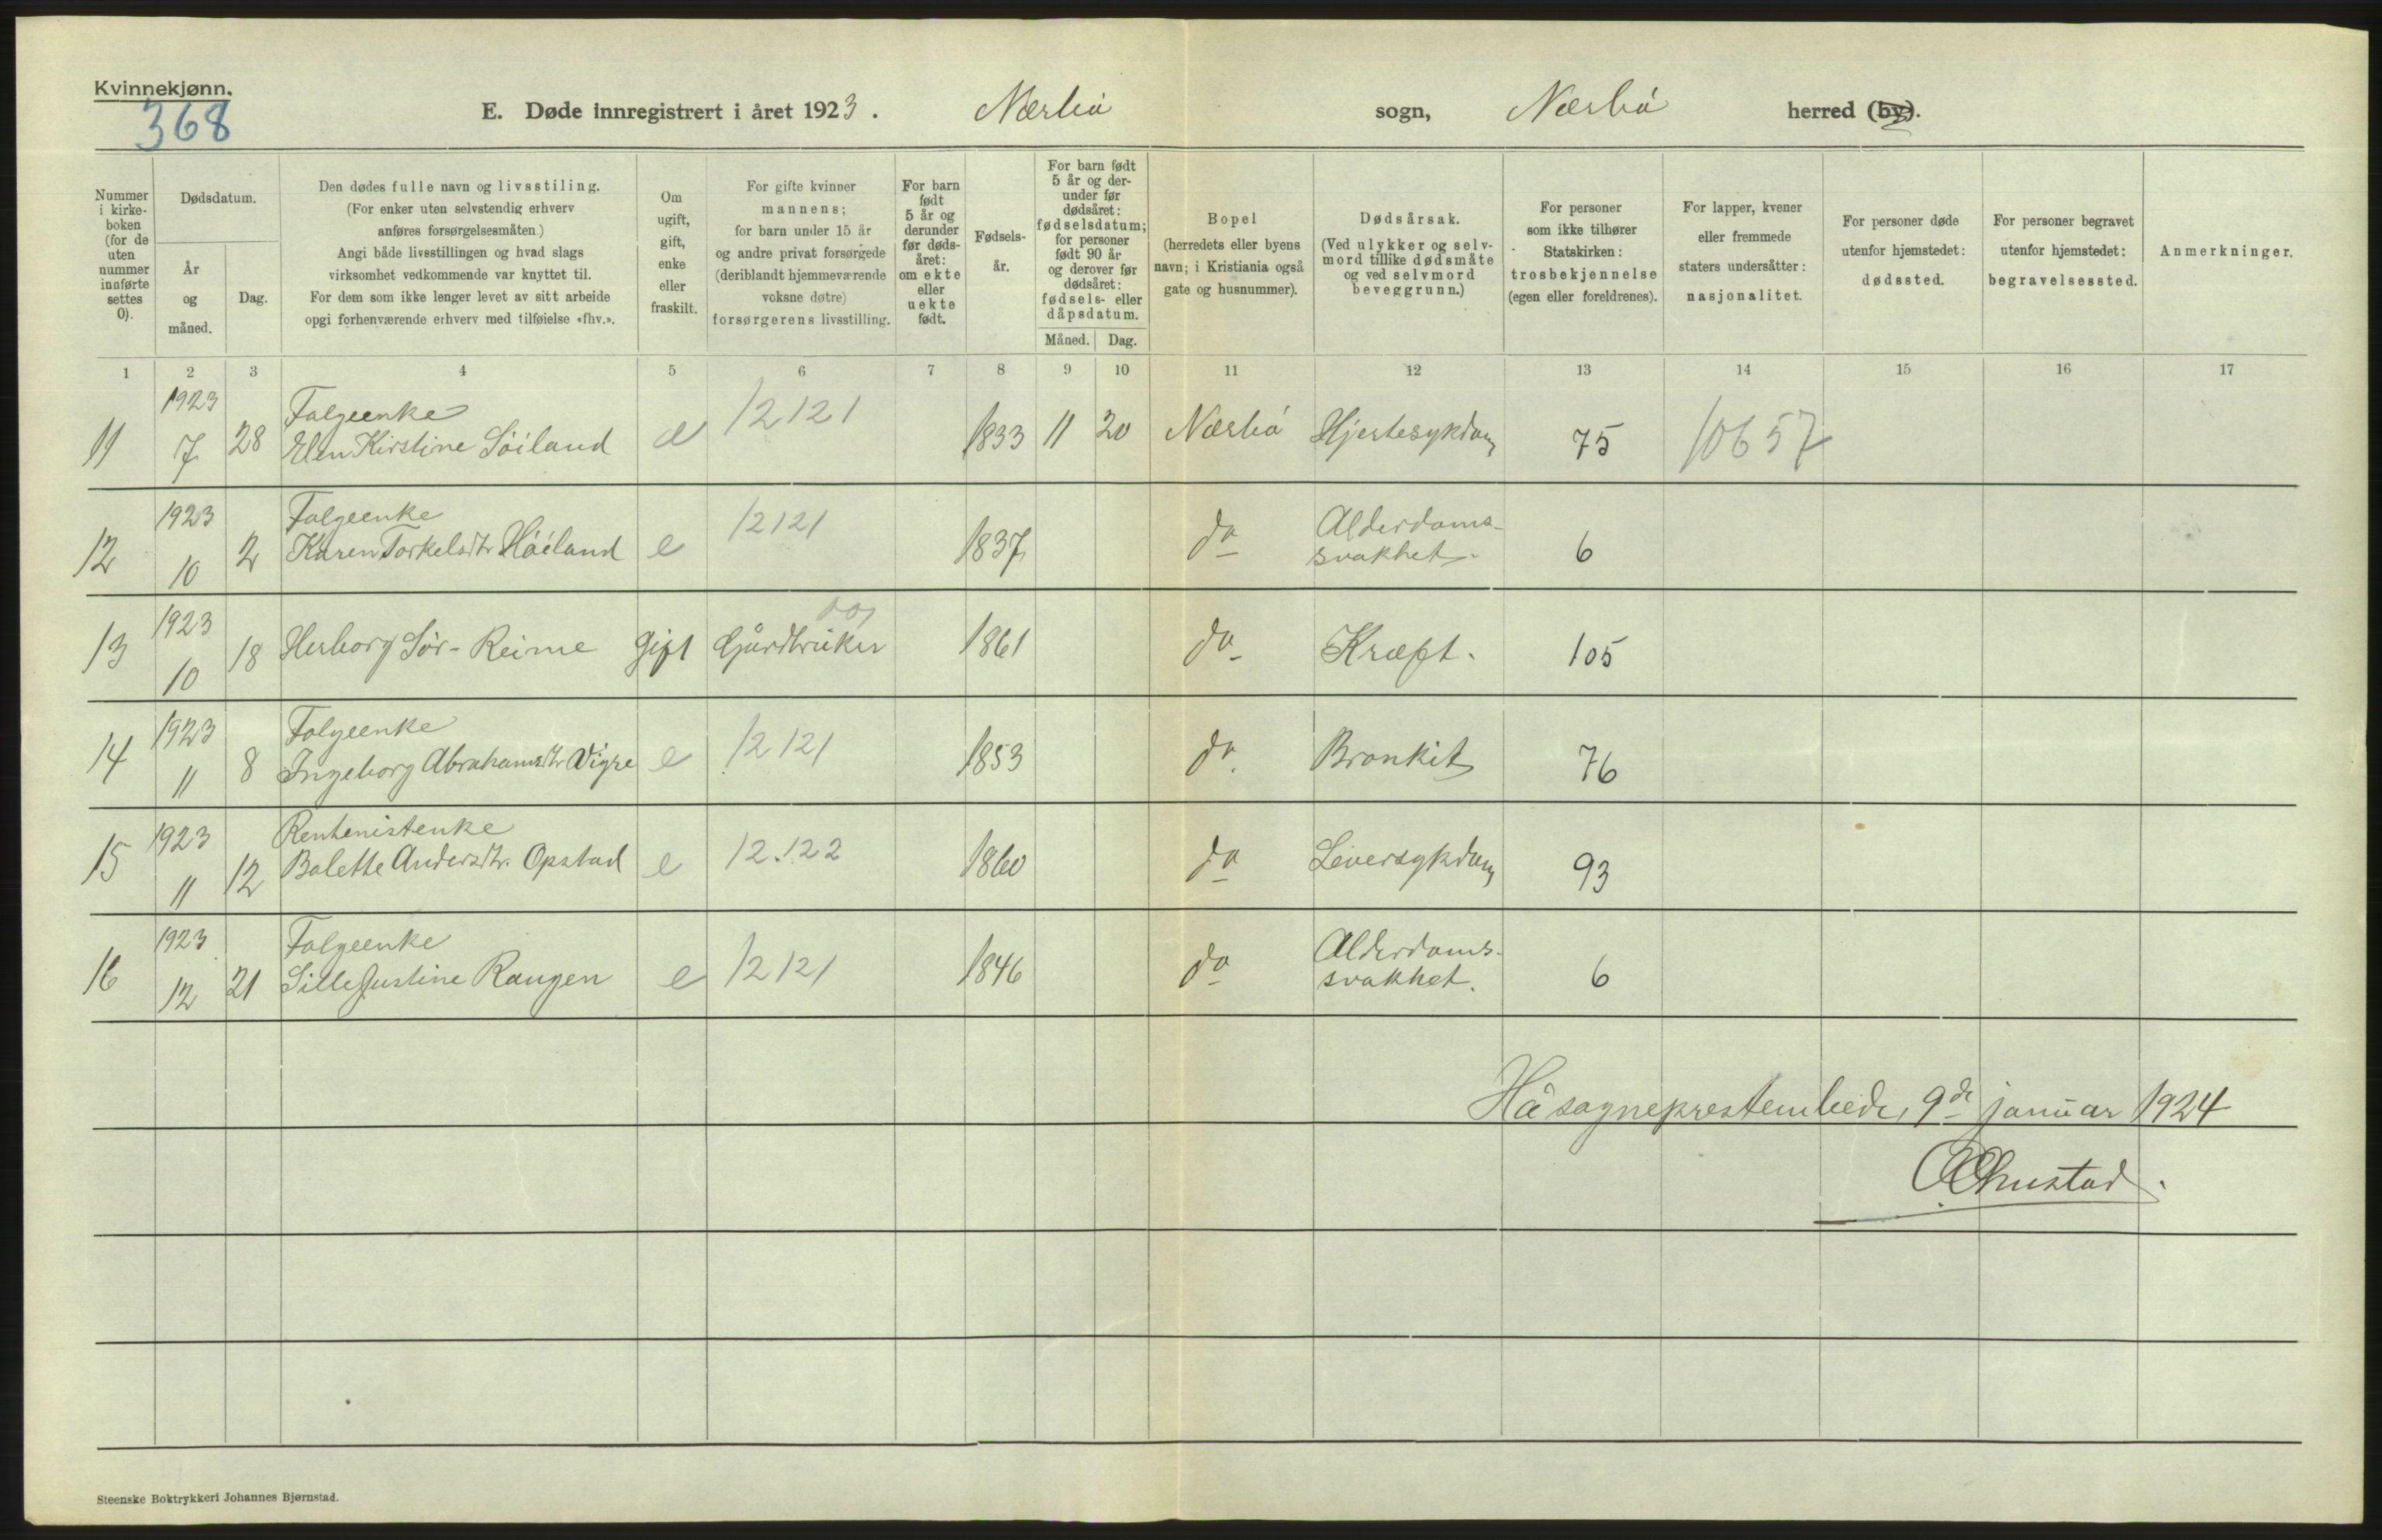 Kvinnekjønn.
368
E. Døde innregistrert i året 1923. Nærbø sogn, Nærbø herred (by).
Nummer i kirke-boken (for de uten nummer innførte settes 0).
Dødsdatum.
År og måned.
Dag.
Den dødes fulle navn og livsstiling.
(For enker uten selvstendig erhverv
anføres forsørgelsesmåten.)
Angi både livsstillingen og hvad slags
virksomhet vedkommende var knyttet til.
For dem som ikke lenger levet av sitt arbeide
opgi forhenværende erhverv med tilføielse «fhv.».
Om ugift, gift, enke eller fraskilt.
For gifte kvinner
mannens;
for barn under 15 år
og andre privat forsørgede
(deriblandt hjemmeværende
voksne døtre)
forsørgerens livsstilling.
For barn født 5 år og derunder før døds-året: om ekte eller uekte født.
Fødsels-år.
For barn født 5 år og der-under før dødsåret: fødselsdatum; for personer født 90 år og derover før dødsåret: fødsels- eller dåpsdatum.
Måned. Dag.
Bopel
(herredets eller byens
navn; i Kristiania også
gate og husnummer).
Dødsårsak.
(Ved ulykker og selv-
mord tillike dødsmåte
og ved selvmord
beveggrunn.)
For personer
som ikke tilhører
Statskirken:
trosbekjennelse
(egen eller foreldrenes).
For lapper, kvener
eller fremmede
staters undersåtter:
nasjonalitet.
For personer døde
utenfor hjemstedet:
dødssted.
For personer begravet
utenfor hjemstedet:
begravelsessted.
Anmerkninger.
1 2 3 4 5 6 7 8 9 10 11 12 13 14 15 16 17
1923 Folgeenke 12121
11 7 28 Elen Kirstine Søiland e 1833 11 20 Nærbø Hjertesykdom 75 10657
1923 Folgeenke 12121 Alderdoms-
12 10 2 Karen Torkelsdtr Høiland e 1837 do svakhet. 6
1923
13 10 18 Herborg Sør-Reime gift Gårdbruker 1861 do Kræft. 105
1923 Folgeenke 12121
14 11 8 Ingeborg Abrahamsdtr Vigre e 1853 do. Bronkit 76
1923 Rentenistenke 12.122
15 11 12 Bolette Andersdtr. Opstad e 1860 do Leversykdom 93
1923 Folgeenke 12121 Alderdoms-
16 12 21 Sille Justine Raugen e 1846 do svakhet. 6
Hå sogneprestembede, 9de januar 1924
Steenske Boktrykkeri Johannes Bjørnstad.